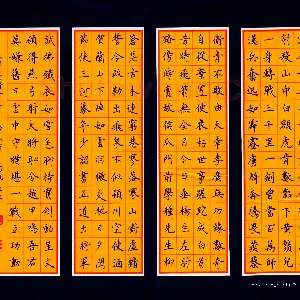 射殺山中白額虎肯數鄴下黃鬚兒
一身轉戰三千里一劍曾當百萬師
漢兵奮迅如霹靂虜騎崩騰畏蒺藜
衛青不敗由天幸李廣無功緣數奇
自從棄置便衰朽世事蹉跎成白首
昔時飛箭無全目今日垂楊生左肘
路傍時賣故侯瓜門前學種先生柳
蒼茫古木連窮巷寥落寒山對虛牖
誓令疏勒出飛泉不似潁川空使酒
賀蘭山下陣如雲羽檄交馳日夕聞
節使三河募年少詔書五道出將軍
試拂鐵衣如雪色聊持寶劍動星文
願得燕弓射大將恥令越甲鳴吾君
莫嫌舊日雲中守猶堪一戰立功勳